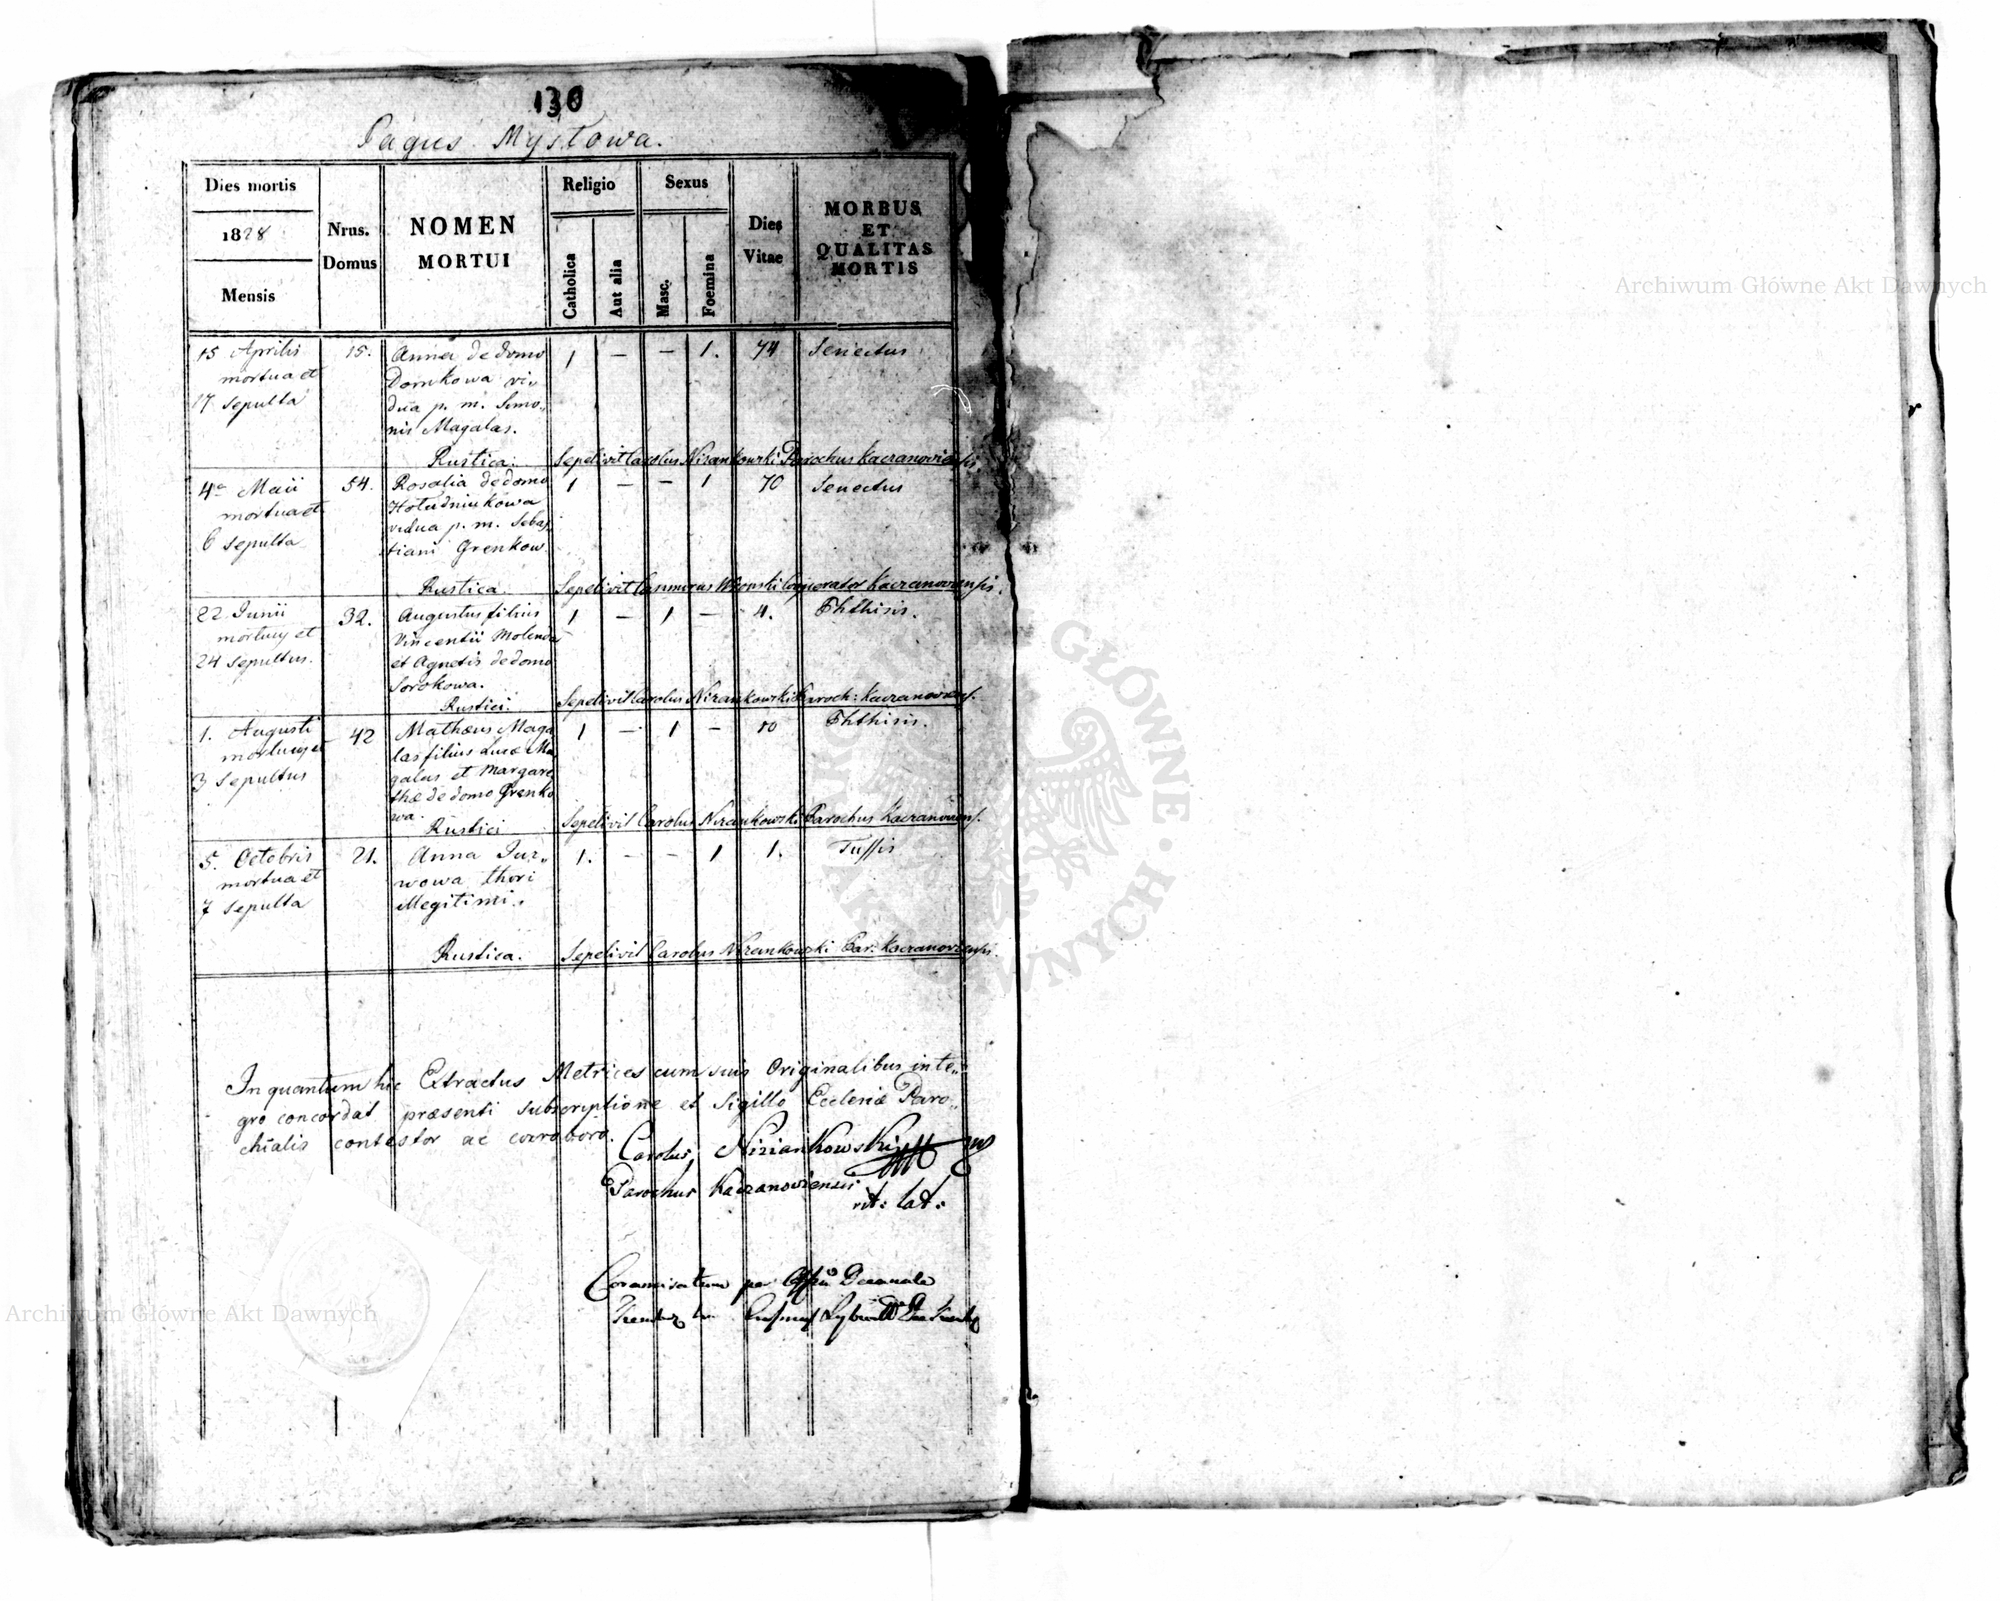 130
Pagus Mysłowa.
Dies mortis
1828
Mensis
Nrus.
Domus
NOMEN
MORTUI
Religio
Catholica
Aut alia
Sexus
Masc.
Foemina
Dies
Vitae
MORBUS
ET
QUALITAS
MORTIS
15 Aprilis 15. Anna de domo 1 — — 1. 74 Senectus
mortua et Dornkowa vi„
17 Sepulta dua p. m. Simo„
nis Magalas.
Rustica. Sepelivit Carolus Nizankowski Parochus Kaczanoviensis.
4a Maii 54. Rosalia de domo 1 — — 1 70 Senectus
mortua et Hołudniukowa
6 Sepulta vidua p. m. Sebas,
tiani Grenkow
Rustica. Sepelivit Cooperator Kaczanoviensis.
22 Junii 32. Augustus filius 1 — 1 — 4. Phthisis.
mortuus et Vincentii Molenda
24 Sepultus. et Agnetis de domo
Sorokowa.
Rustici. Sepelivit Carolus Nizankowski Paroch: Kaczanoviens.
1. Augusti 42 Mathæus Maga 1 — 1 — 10 Phthisis.
mortuus et las filius Lucæ Ma
3 Sepultus galas et Margare,
thæ de domo Grenko
wa.
Rustici Sepelivit Carolus Nizankowski Parochus Kaczanoviens.
5. Octobris 21. Anna Jur„ 1. — — 1 1. Tussis
mortua et wowa thori
7 Sepulta illegitimi.
Rustica. Sepelivit Carolus Nizankowski Par. Kaczanoviensis.
In quantum hic Extractus Metrices cum suis Originalibus inte„
gro concordat præsenti subscriptione et Sigillo Ecclesiæ Paro„
chialis contestor ac corroboro.
Carolus Niziankowski
Parochus Kaczanoviensis
rit: lat:
Coramisatum per Decanale
Archiwum Główne Akt Dawnych
Archiwum Główne Akt Dawnych